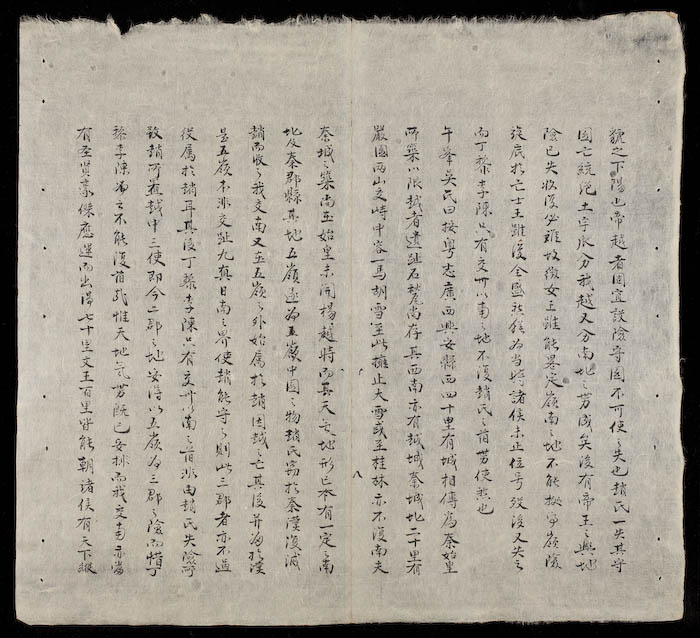 虢之下陽也帝越者固宜設險守國不可使之失也趙氏一失其守
國亡統絕土宇瓜分我越又分南北之勢成矣後有帝王之興地
險已失收復必難故徵女王雖能畧定嶺南之地不能扼守嶺隘
旋底於亡士王雖復全盛然猶為當時諸侯未正位號歿後又失之
而丁黎李陳只有交州以南之地不復趙氏之舊勢使然也
午峯吳氏曰按粵志廣西興安縣西四十里有城相傳為秦始皇
所築以限越者遺趾石甃尚存其西南亦有越城秦城北二十里有
嚴關兩山交峙中容一馬胡雪至此擁止大雪或至桂林亦不復南夫
八
秦城之築尚在始皇未開楊越時而其天定地形已本有一定之南
北及秦郡縣其地五嶺遂為五嶺中國之物趙氏竊於秦漢復滅
趙而收之我交南又在五嶺之外始屬於趙因越之亡其後并為於漢
是五嶺不涉交趾九真日南之界使趙能守之則此三郡者亦不過
役屬於趙耳其後丁黎李陳只有交州以南之舊非由趙氏失險守
致趙所置越中三使即今二郡之地安得以五嶺為三郡之險而惜丁
黎李陳為之不能復舊哉惟天地氣勢既已安排而我交南亦當
有聖賢豪傑應運而出湯七十里文王百里皆能朝諸侯有天下縱